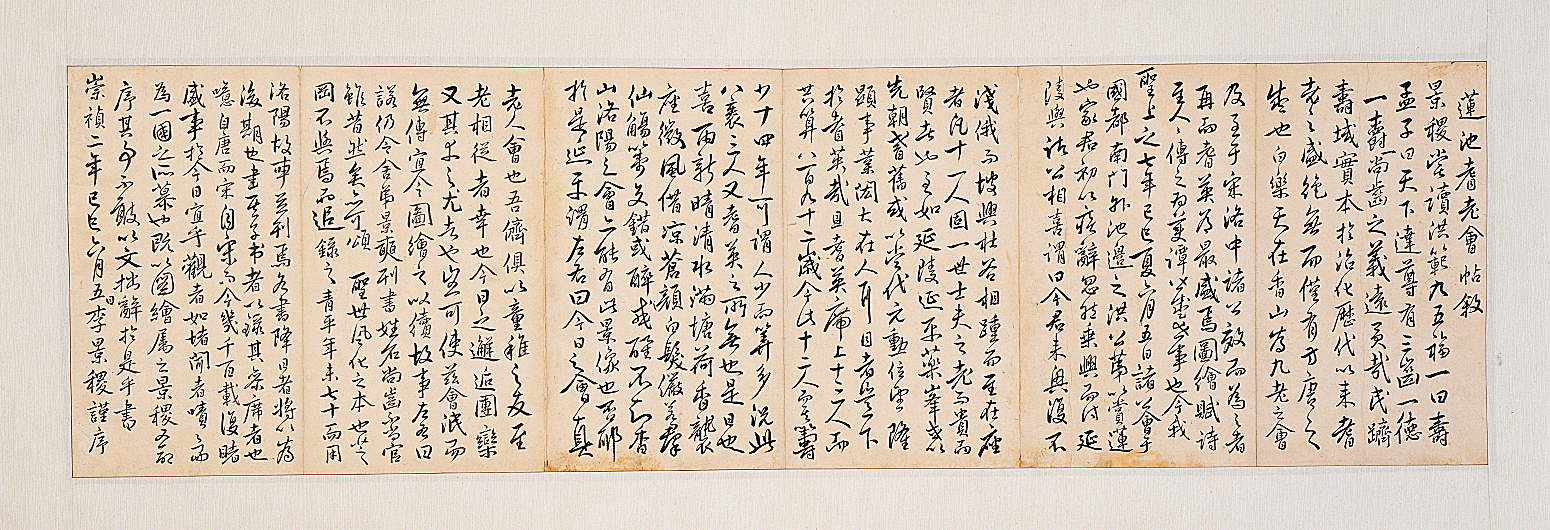 蓮池耆老會帖敘
景稷嘗讀洪範九五福一曰壽
孟子曰天下達尊有三齒一德
一壽尚齒之義遠矣哉民躋
壽域實本於治化歷代以來耆
老之盛絶無而僅有方唐之
盛也白樂天在香山爲九老之會
及至于宋洛中諸公效而爲之者
再而耆英爲最盛焉圖繪賦詩
至人人傳之爲美譚必盛世事也今我
聖上之七年己巳夏六月五日諸公會于
國都南門外池邊之洪公第以賞蓮
也家君初以疾辭忽然乘興而往延
陵與諸公相喜謂曰今君來興復不
淺俄而坡興杜谷相踵而至在座
者凡十一人固一世士夫之老而貴而
賢者也至如延陵延平藥峯或以
先朝耆舊或以當代元勳位望隆
顯事業闊大在人耳目者豈下
於耆英哉且耆英席上十二人而
共算八百九十二歲今此十二人之壽
少十四年可謂人少而算多況此
八袠三人又耆英之所無也是日也
喜雨新晴清水滿塘荷香襲
座微風借凉蒼顔白髮儼若群
仙觴籌交錯或醉或醒不知香
山洛陽之會亦能有此景像也否耶
於是延平謂左右曰今日之會眞
老人會也吾儕俱以童稚之友至
老相從者幸也今日之邂逅團欒
又其幸之尤者也豈可使茲會泯而
無傳宜令圖繪之以續故事左右曰
諾仍令舍弟景顒列書姓名尚齒不尚官
雖昔然矣亦可頌
聖世風化之本也  家
岡不與焉而追錄之青平年未七十而用
洛陽故事並列焉各書降日者將以爲
後期也書某子弟者以錄其參席者也
噫自唐而宋自宋而今幾千百載復睹
盛事於今日宜乎觀者如堵聞者嘖嘖而
爲一國之所慕也旣以圖繪屬之景稷又命
序其事不敢以文拙辭於是乎書
崇禎二年己巳六月五日李景稷謹序